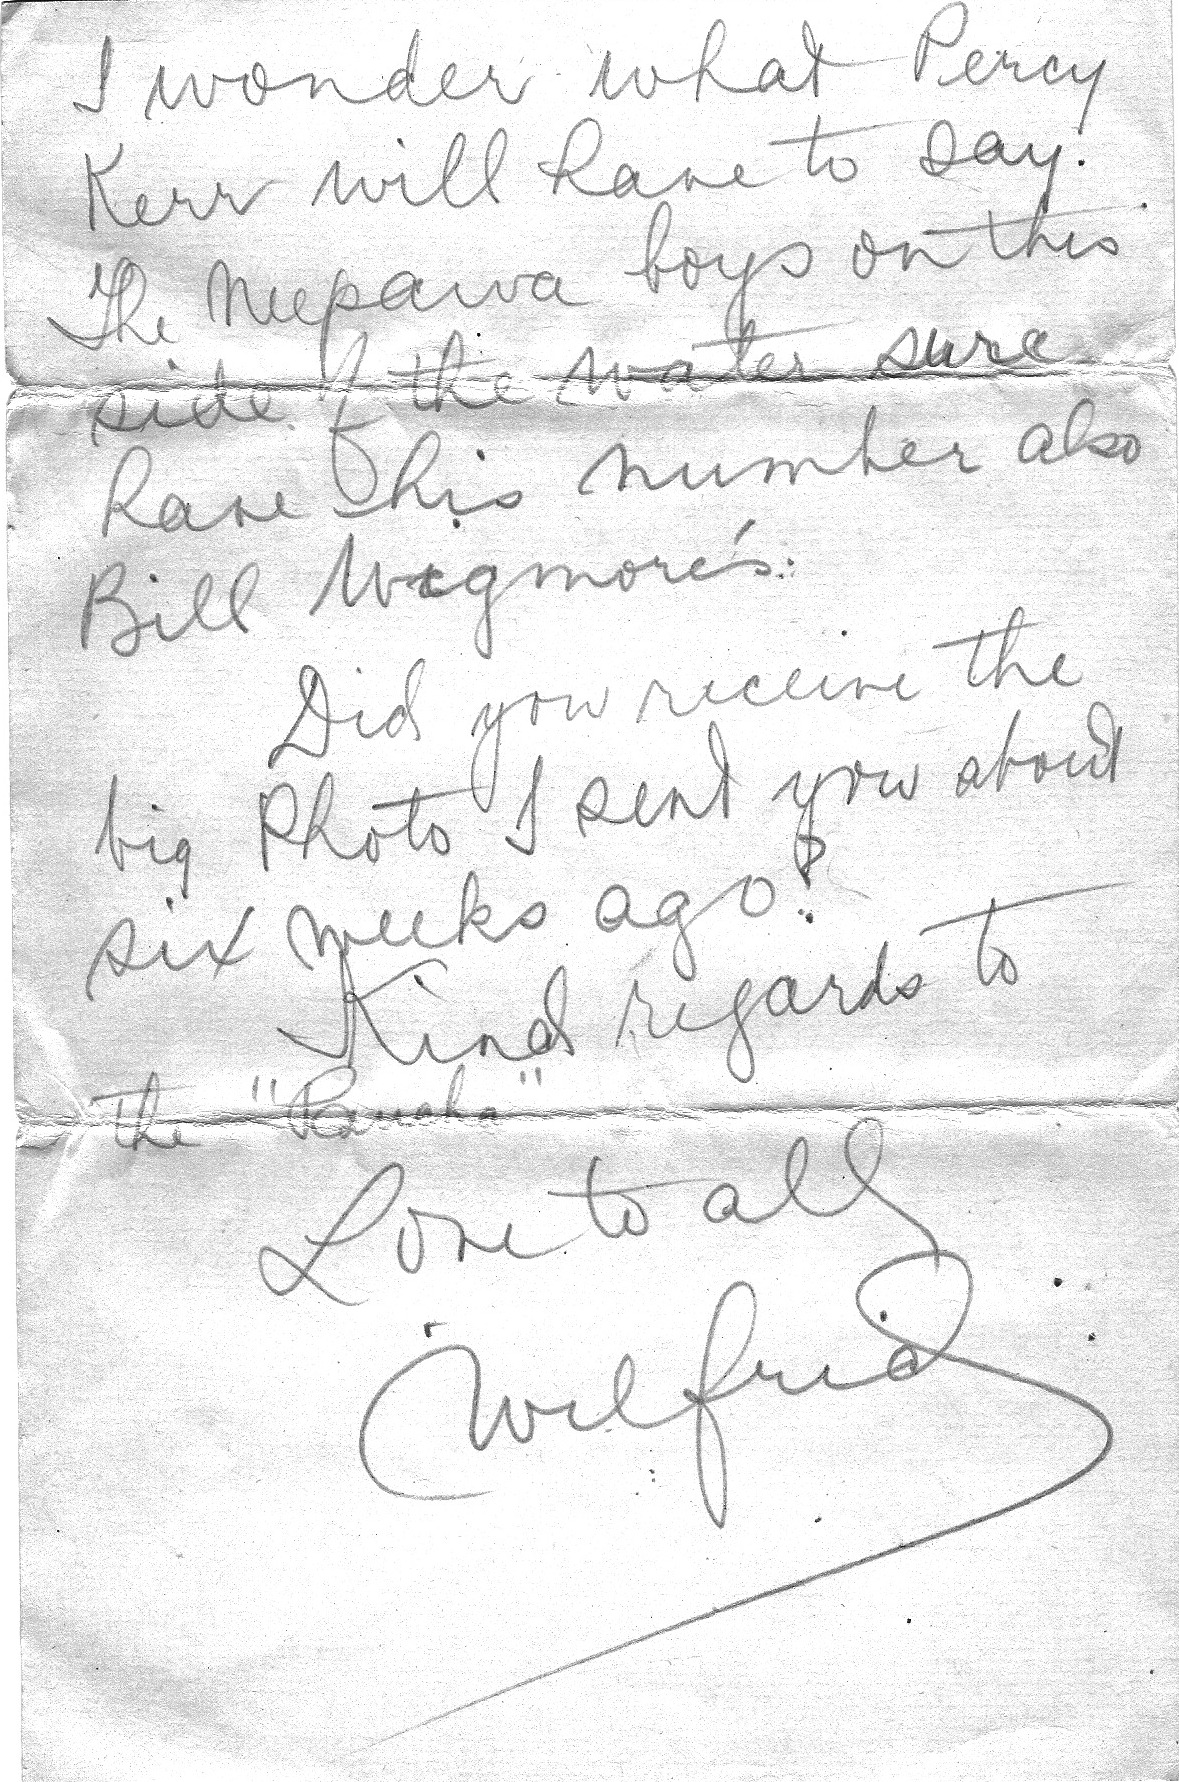 I wonder what Percy
Kerr will have to say.
The Neepawa boys on this
side of the water sure
have his number also
Bill Wigmore's.
Did you receive the
big Photo I sent you about
six weeks ago?
Kind regards to
the "Buncha"
Love to all
Wilfrid